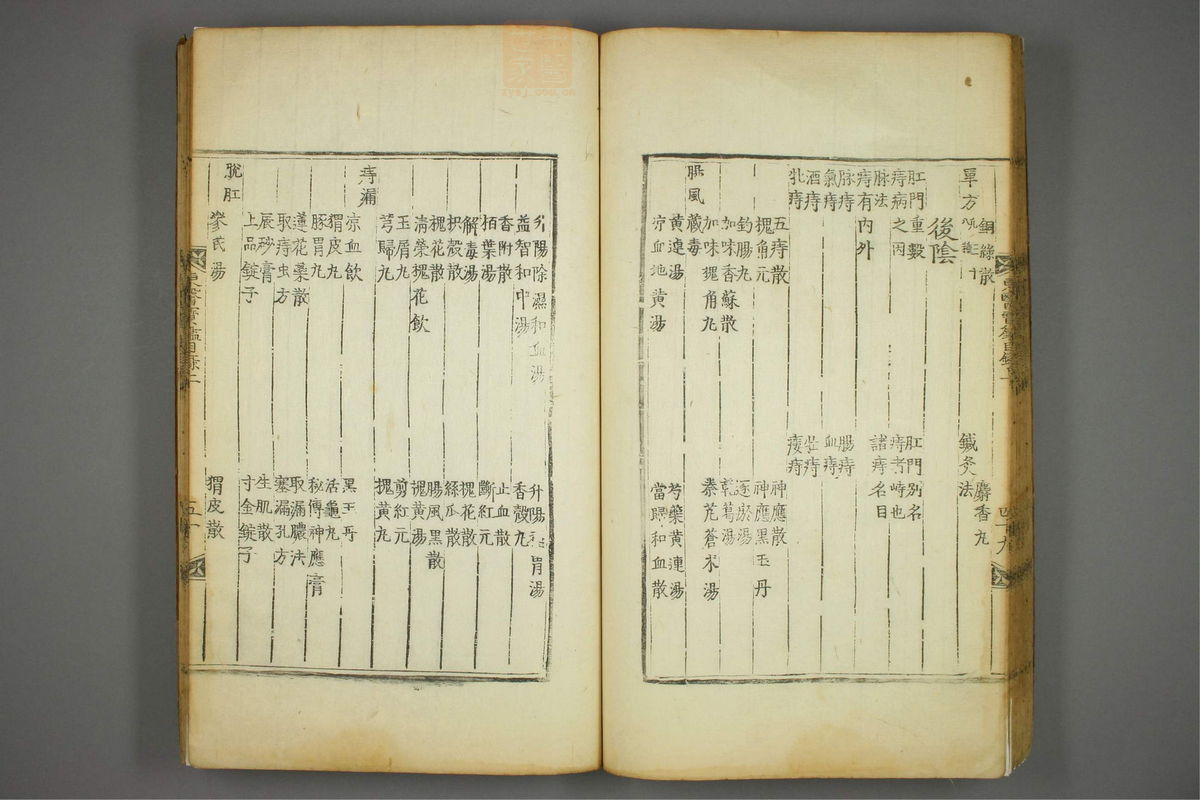 銅綠散 麝香丸
單方 鍼灸法
後陰
肛門重數 肛門別名
痔病之因 痔者峙也
脉法 諸痔名目
痔有內外
脉痔 腸痔
氣痔 血痔
酒痔 牡痔
牝痔 瘻痔
五痔散 神應散
槐角元 神應黑玉丹
釣腸丸 逐瘀湯
加味香蘇散 乾葛湯
加味槐角丸 秦艽蒼朮湯
腸風藏毒
黃連湯 芍藥黃連湯
凉血地黃湯 當歸和血散
升陽除濕和血湯 升陽胃湯
益智和中湯 香殼丸
香附散 止血散
栢葉湯 斷紅元
解毒湯 槐花散
枳殼散 絲瓜散
槐花散 腸風黑散
清榮槐花飮 槐黃湯
玉屑丸 剪紅元
芎歸丸 槐黃丸
痔漏
凉血飮 黑玉丹
猬皮丸 活龜丸
豚胃丸 秘傳神應膏
蓮花蘂散 取漏膿法
取痔虫方 塞漏孔方
辰砂膏 生肌散
上品錠子 寸金錠子
脫肛
參芪湯 猬皮散
東醫寶鑑目錄二
五十